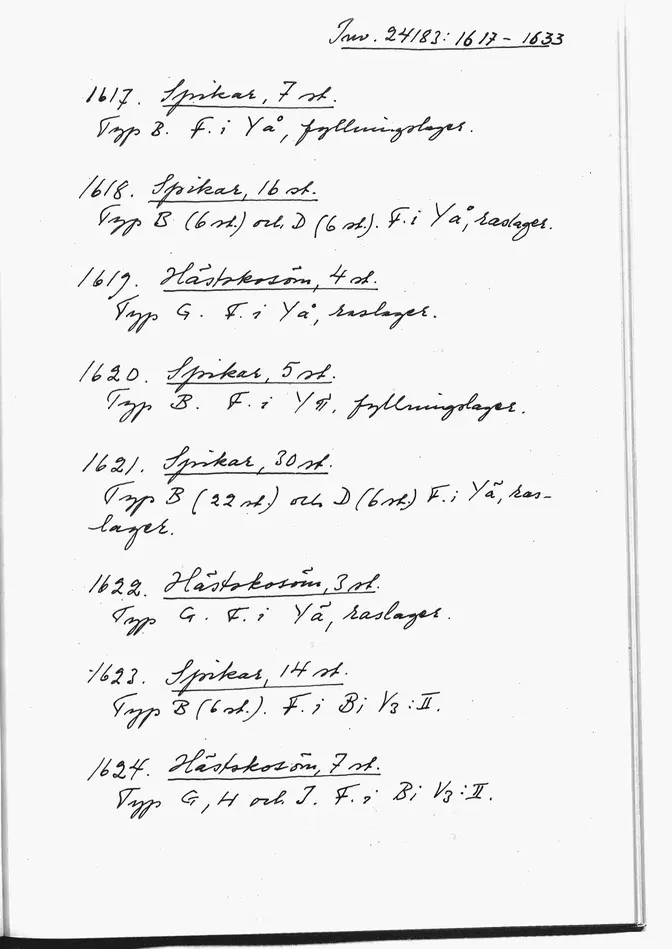 Inv. 24183: 1617 - 1633
1617. Spikar, 7 st.
Typ B. F. i Yå, fyllningslager.
1618. Spikar, 16 st.
Typ B (6 st.) och D (6 st.). F. i Yå, raslager.
1619. Hästskosöm, 4 st.
Typ G. F. i Yå, raslager.
1620. Spikar, 5 st.
Typ B. F. i fyllningslager.
1621. Spikar, 30 st.
Typ B (22 st.) och D (6 st.) F. i Yä, ras-
lager.
1622. Hästskosöm, 3 st.
Typ G. F. i Yä, raslager.
1623. Spikar, 14 st.
Typ B (6 st.). F. i Bi V3:II.
1624. Hästskosöm, 7 st.
Typ G, H och I. F. i Bi V3:II.